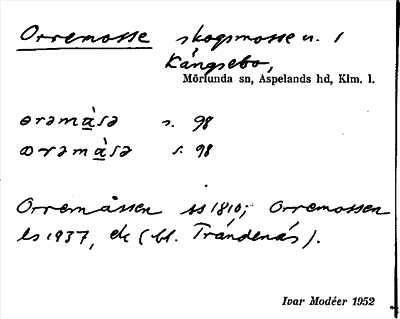 Orremosse skogsmosse n. 1
Kångsebo,
Mörlunda sn, Aspelands hd, Klm. l.
ɵrəmàsə s. 98
ɷrəmàsə s. 98
Orremåssen ss 1810; Orremossen
ls 1937, ek (bl. Tråndenäs).
Ivar Modéer 1952